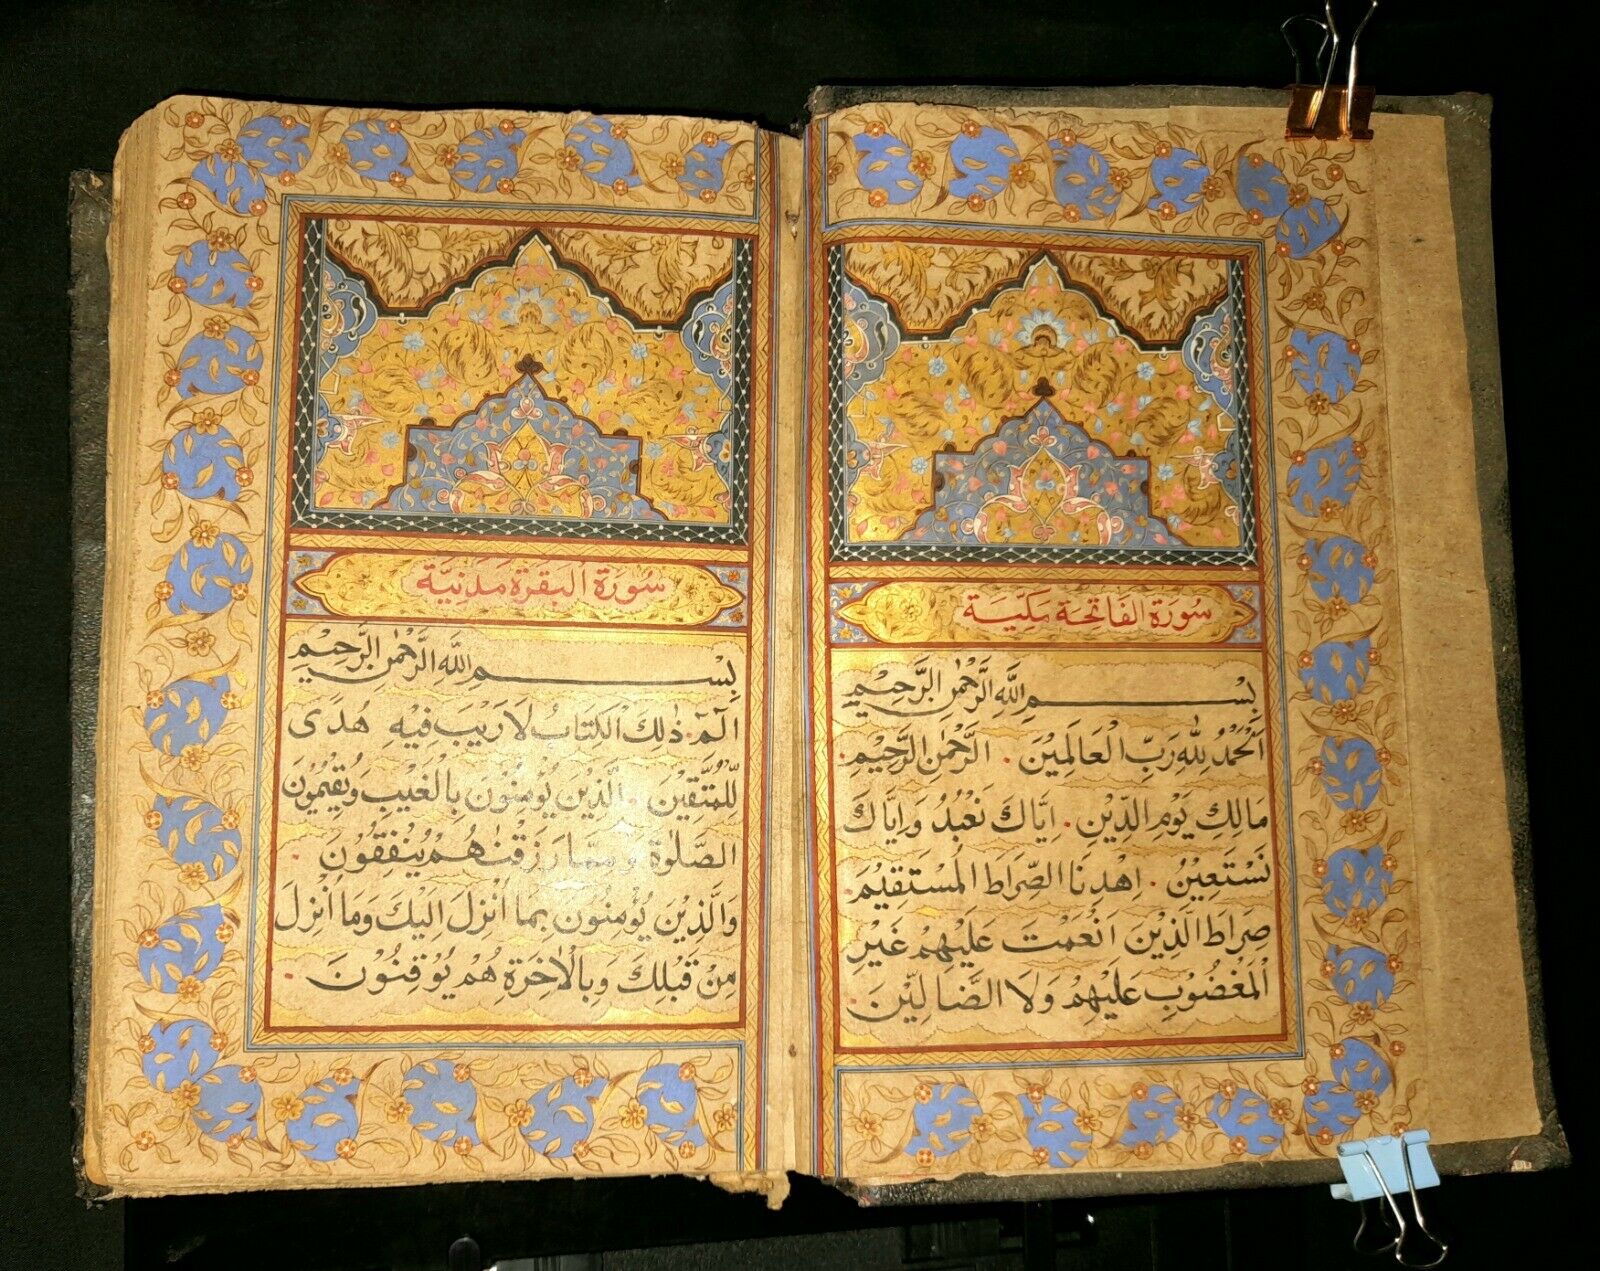 سُورَة الفَاتِحَة مَكِّيَة
بِسْمِ اللهِ الرَّحْمٰنِ الرَّحِيْمِ
اَلْحَمْدُ لِلّٰهِ رَبِّ الْعَالَمِيْنَ . الرَّحْمٰنِ الرَّحِيْمِ .
مَالِكِ يَوْمِ الدِّيْنِ . اِيَّاكَ نَعْبُدُ وَاِيَّاكَ
نَسْتَعِيْنُ . اِهْدِنَا الصِّرَاطَ الْمُسْتَقِيْمَ .
صِرَاطَ الَّذِيْنَ اَنْعَمْتَ عَلَيْهِمْ غَيْرِ
الْمَغْضُوْبِ عَلَيْهِمْ وَلَا الضَّالِّيْنَ .
سُورَة البَقرَة مَدَنِيَّة
بِسْمِ اللهِ الرَّحْمٰنِ الرَّحِيْمِ
الٓمٓ . ذٰلِكَ الْكِتَابُ لَا رَيْبَ فِيْهِ هُدًى
لِلْمُتَّقِيْنَ . الَّذِيْنَ يُؤْمِنُوْنَ بِالْغَيْبِ وَيُقِيْمُوْنَ
الصَّلٰوةَ وَمِمَّا رَزَقْنٰهُمْ يُنْفِقُوْنَ .
وَالَّذِيْنَ يُؤْمِنُوْنَ بِمَا اُنْزِلَ اِلَيْكَ وَمَا اُنْزِلَ
مِنْ قَبْلِكَ وَبِالْاٰخِرَةِ هُمْ يُوْقِنُوْنَ .